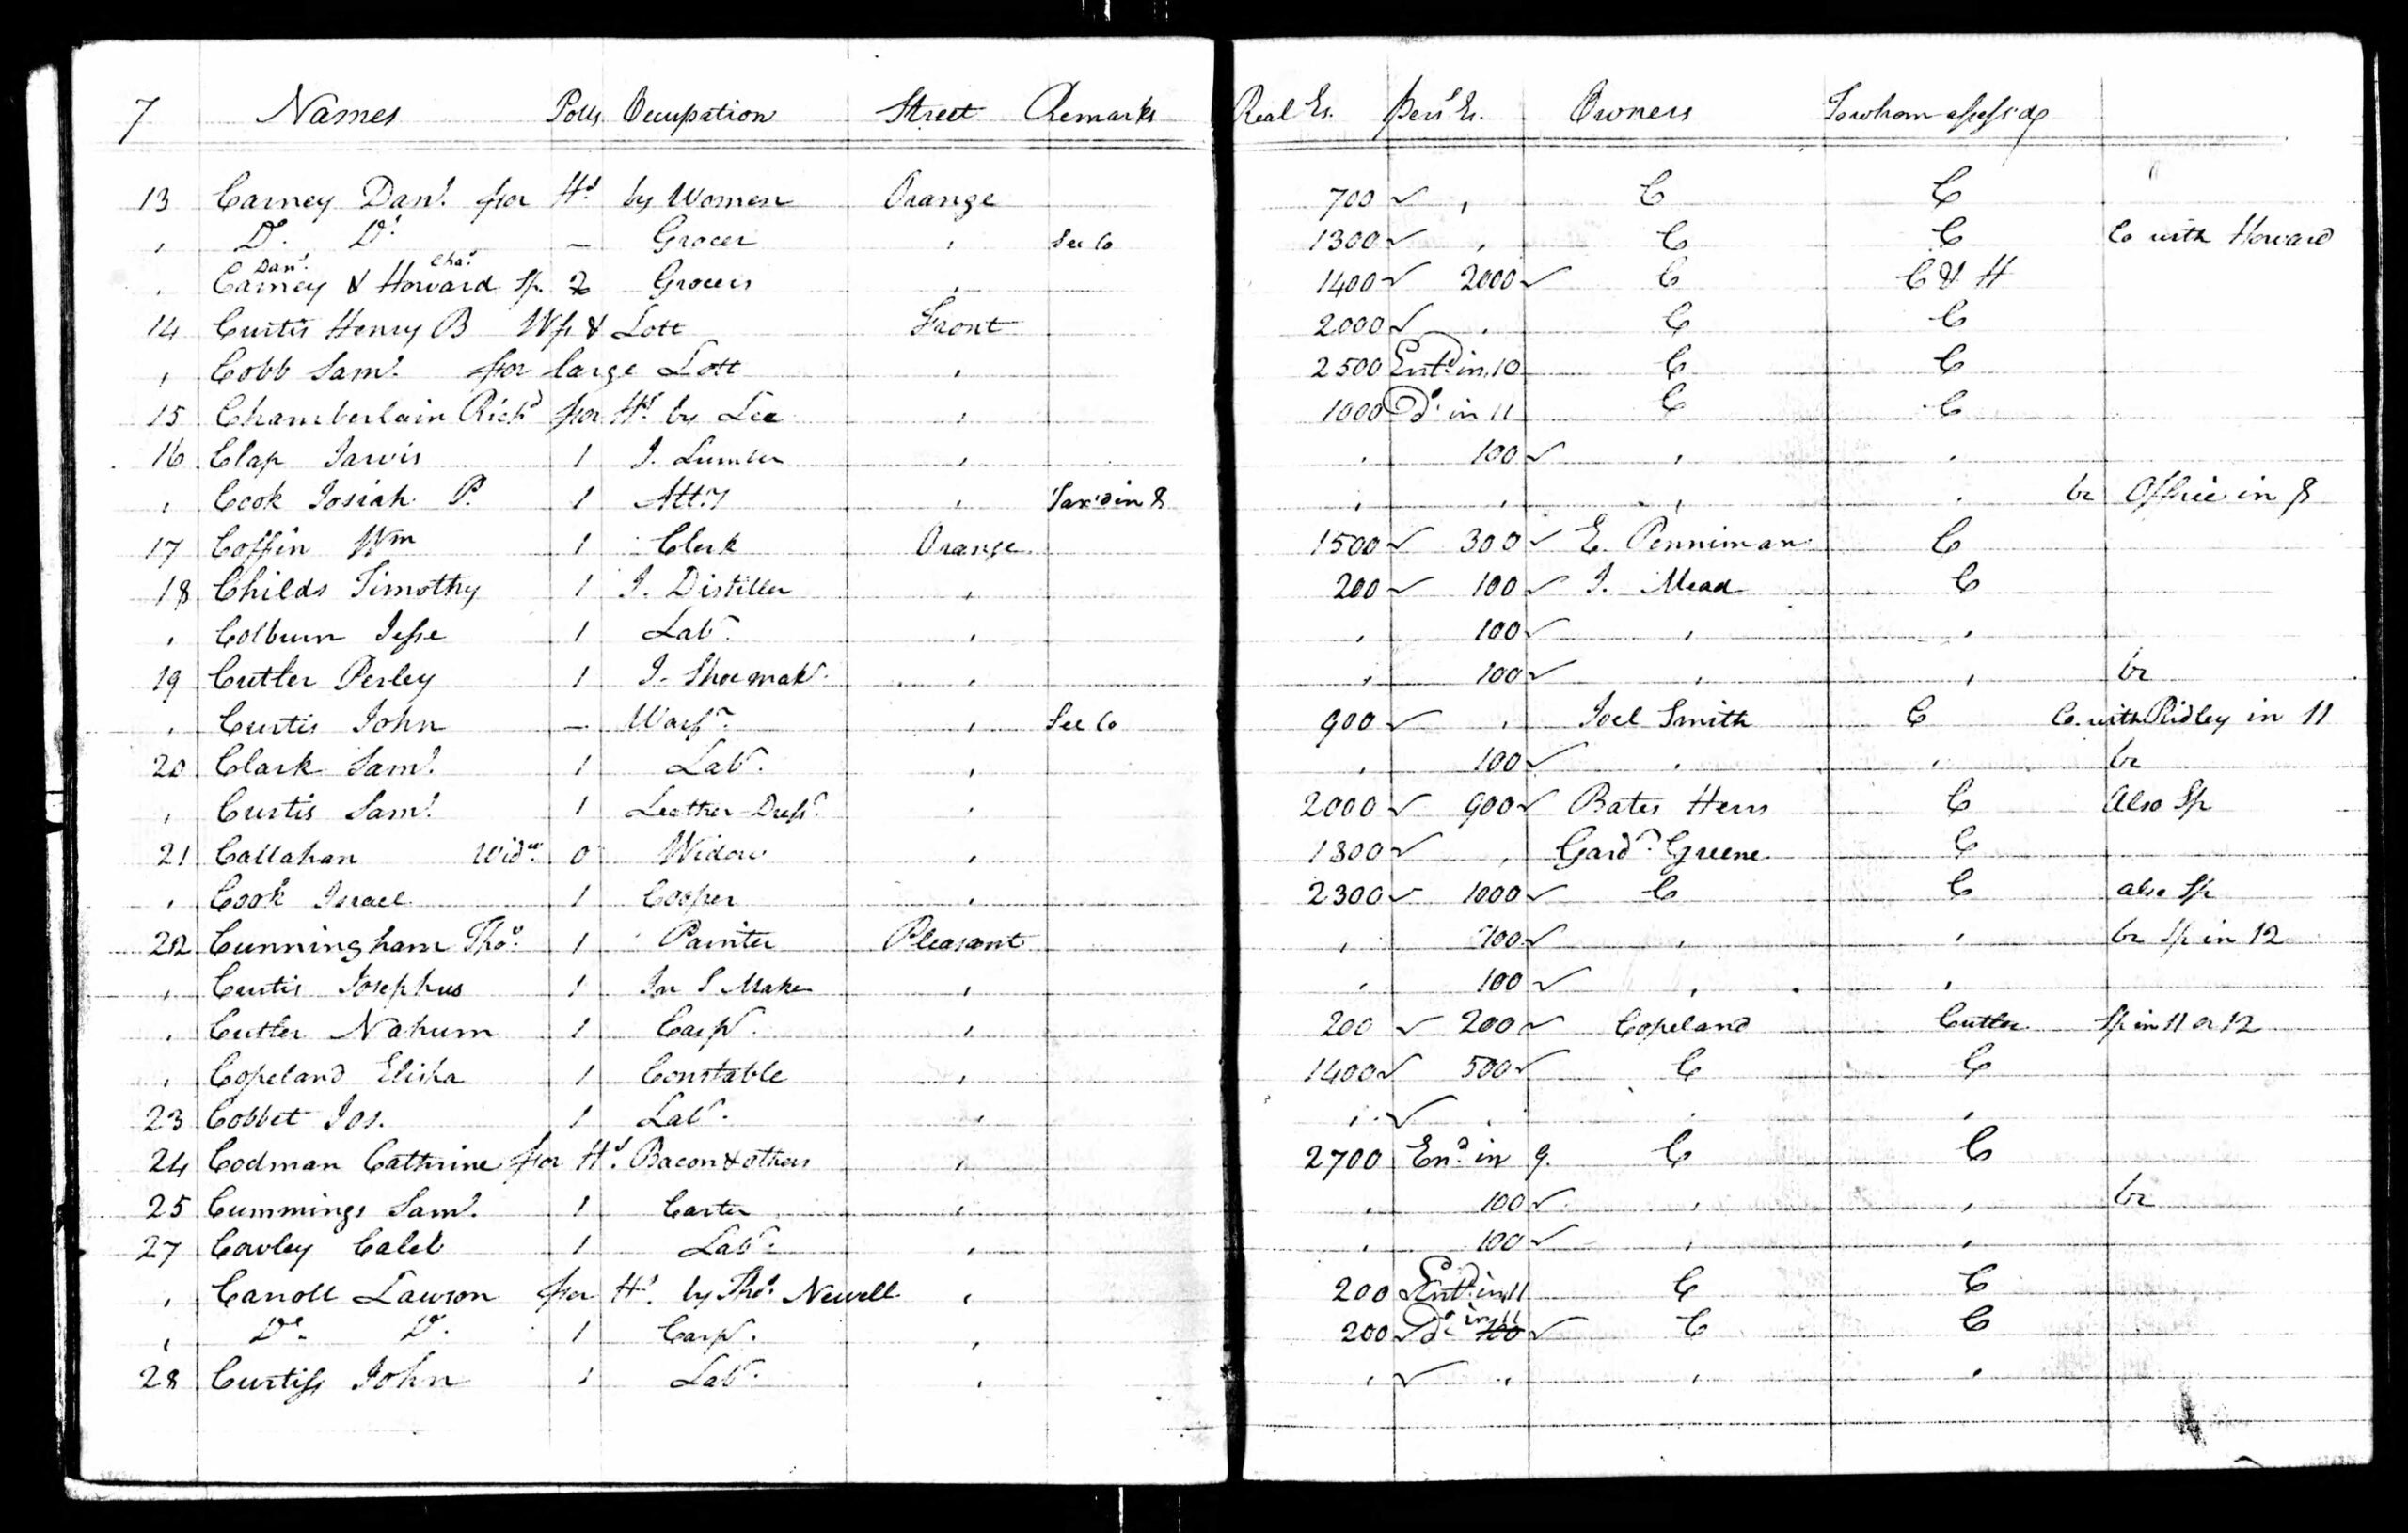 7 Names Polls Occupation Street Remarks Real Es. Pers¹ Es. Owners To whom assess'd
13 Carney Dan¹. for Hs by Women Orange 700 ✓ , C C
, Do. Do. — Grocer , See Co 1300 ✓ , C C Co with Howard
Dan¹. Chas.
, Carney & Howard Sp. 2 Grocers , 1400 ✓ 2000 ✓ C C & H
14 Curtis Henry B Wf & Lott Front 2000 ✓ , C C
, Cobb Sam¹. for large Lott , 2500 Entd in 10 C C
15 Chamberlain Richd for Hs by Lee , 1000 Do. in 11 C C
16 Clap Jarvis 1 J. Lumber , , 100 ✓ , ,
, Cook Josiah P. 1 Atty , Tax'd in 8 , , , , br Office in 8
17 Coffin Wm 1 Clerk Orange 1500 ✓ 300 ✓ E. Penniman C
18 Childs Timothy 1 J. Distiller , 200 ✓ 100 ✓ J. Mead C
, Colburn Jesse 1 Labr. , , 100 ✓ , ,
19 Cutler Perley 1 J. Shoemakr. , , 100 ✓ , , br
, Curtis John — Wharfr. , See Co 900 ✓ , Joel Smith C Co. with Ridley in 11
20 Clark Sam¹. 1 Labr. , , 100 ✓ , , br
, Curtis Sam¹. 1 Leather Dressr. , 2000 ✓ 900 ✓ Bates Heirs C Also Sp
21 Callahan Widw. 0 Widow , 1800 ✓ , Gardr. Greene C
, Cook Israel 1 Cooper , 2300 ✓ 1000 ✓ C C also Sp
22 Cunningham Thos. 1 Painter Pleasant , 700 ✓ , , br Sp in 12
, Curtis Josephus 1 Maker , , 100 ✓ , ,
, Cutler Nahum 1 Carpr. , 200 ✓ 200 ✓ Copeland Cutler Sp in 11 or 12
, Copeland Elisha 1 Constable , 1400 ✓ 500 ✓ C C
23 Cobbet Jos. 1 Labr. , , ✓ , , ,
24 Codman Cathrine for Hs. Bacon & others , 2700 End in 9. C C
25 Cummings Sam¹. 1 Carter , , 100 ✓ , , br
27 Cowley Caleb 1 Labr. , , 100 ✓ , ,
, Carroll Lawson for Hs. by Thos. Newell , 200 Entd in 11 C C
, Do. Do. 1 Carpr. , 200 ✓ Do. in 11 100 ✓ C C
28 Curtiss John 1 Labr. , , ✓ , , ,